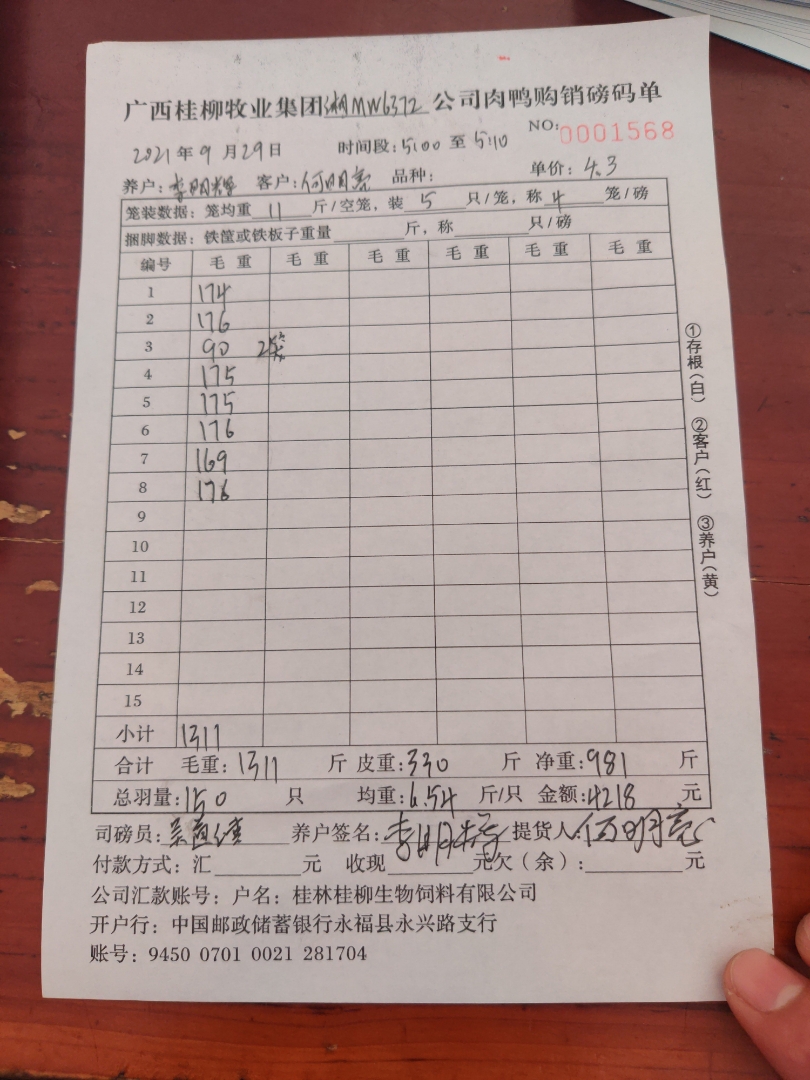 广西桂柳牧业集团湘MW6372公司肉鸭购销磅码单
NO:0001568
2021年9月29日 时间段:5:00至5:10
养户:李明辉 客户:何明亮 品种: 单价:4.3
笼装数据:笼均重 11 斤/空笼,装 5 只/笼,称 4 笼/磅
捆脚数据:铁筐或铁板子重量 斤,称 只/磅
编号 毛重 毛重 毛重 毛重 毛重 毛重
1 174
2 176
3 90 2笼
4 175
5 175
6 176
7 169
8 176
9
10
11
12
13
14
15
小计 1311
合计 毛重:1311 斤 皮重:330 斤 净重:981 斤
总羽量:150 只 均重:6.54 斤/只 金额:4218 元
司磅员: 养户签名:李明辉 提货人:何明亮
付款方式:汇 元 收现 元欠(余): 元
公司汇款账号:户名:桂林桂柳生物饲料有限公司
开户行:中国邮政储蓄银行永福县永兴路支行
账号:9450 0701 0021 281704
①存根(白) ②客户(红) ③养户(黄)